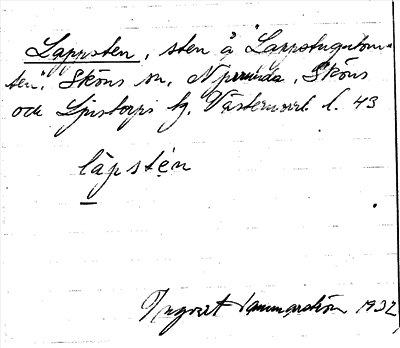 Lappsten, sten å "Lappstugutom-
ten". Sköns sn. Njurunda, Sköns
och Ljustorps tg. Västernorrl. l. 43
läpstén
Ingvart Hammarström 1932